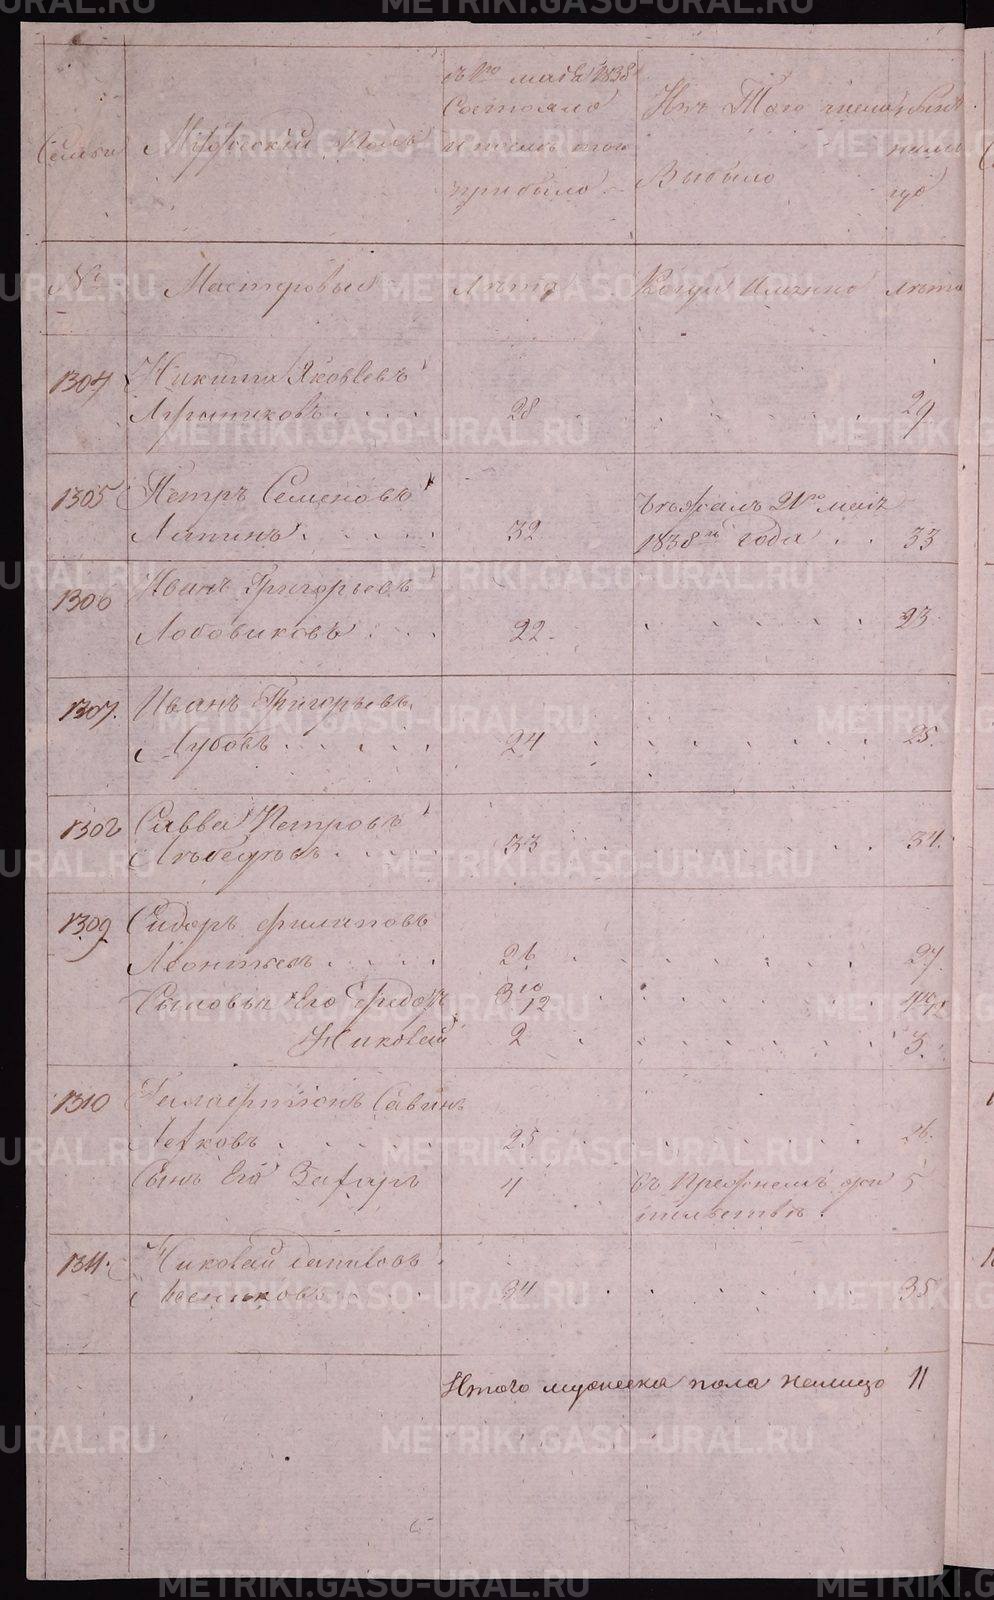 Семьи
Мужеский Полъ
съ 1го маiя 1838
Состояло
и послѣ того
прибыло
Изъ Того числа
Выбыло
нали
Мастеровыя
Лѣта
Когда Имянно
лѣта
1304 Никита Яковлевъ
28 29
1305 Петръ Семеновъ
Бѣжалъ 21го маiя
Лапинъ 32 1838го года 33
1306 Иванъ Григорьевъ
Лобовиковъ 22 23
1307. Иванъ Григорьевъ
Лубовъ 24 25.
1308 Савва Петровъ
33 34.
1309 Сидоръ Филиповъ
Леонтьевъ 26 27
Сыновья Его Федоръ 3 10/12 4 10/12
Николай 2 3.
1310 Савинъ
Летковъ 25 26.
Сынъ Его Захаръ 4 въ Прежнемъ жи 5
тильствѣ.
1311. Николай
34 35
Итого мужеска пола налицо 11
METRIKI.GASO-URAL.RU